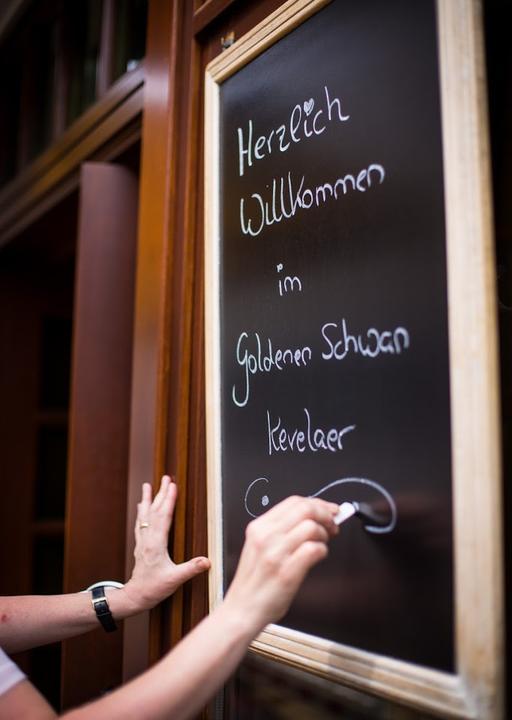 Herzlich
Willkommen
im
Goldenen Schwan
Kevelaer